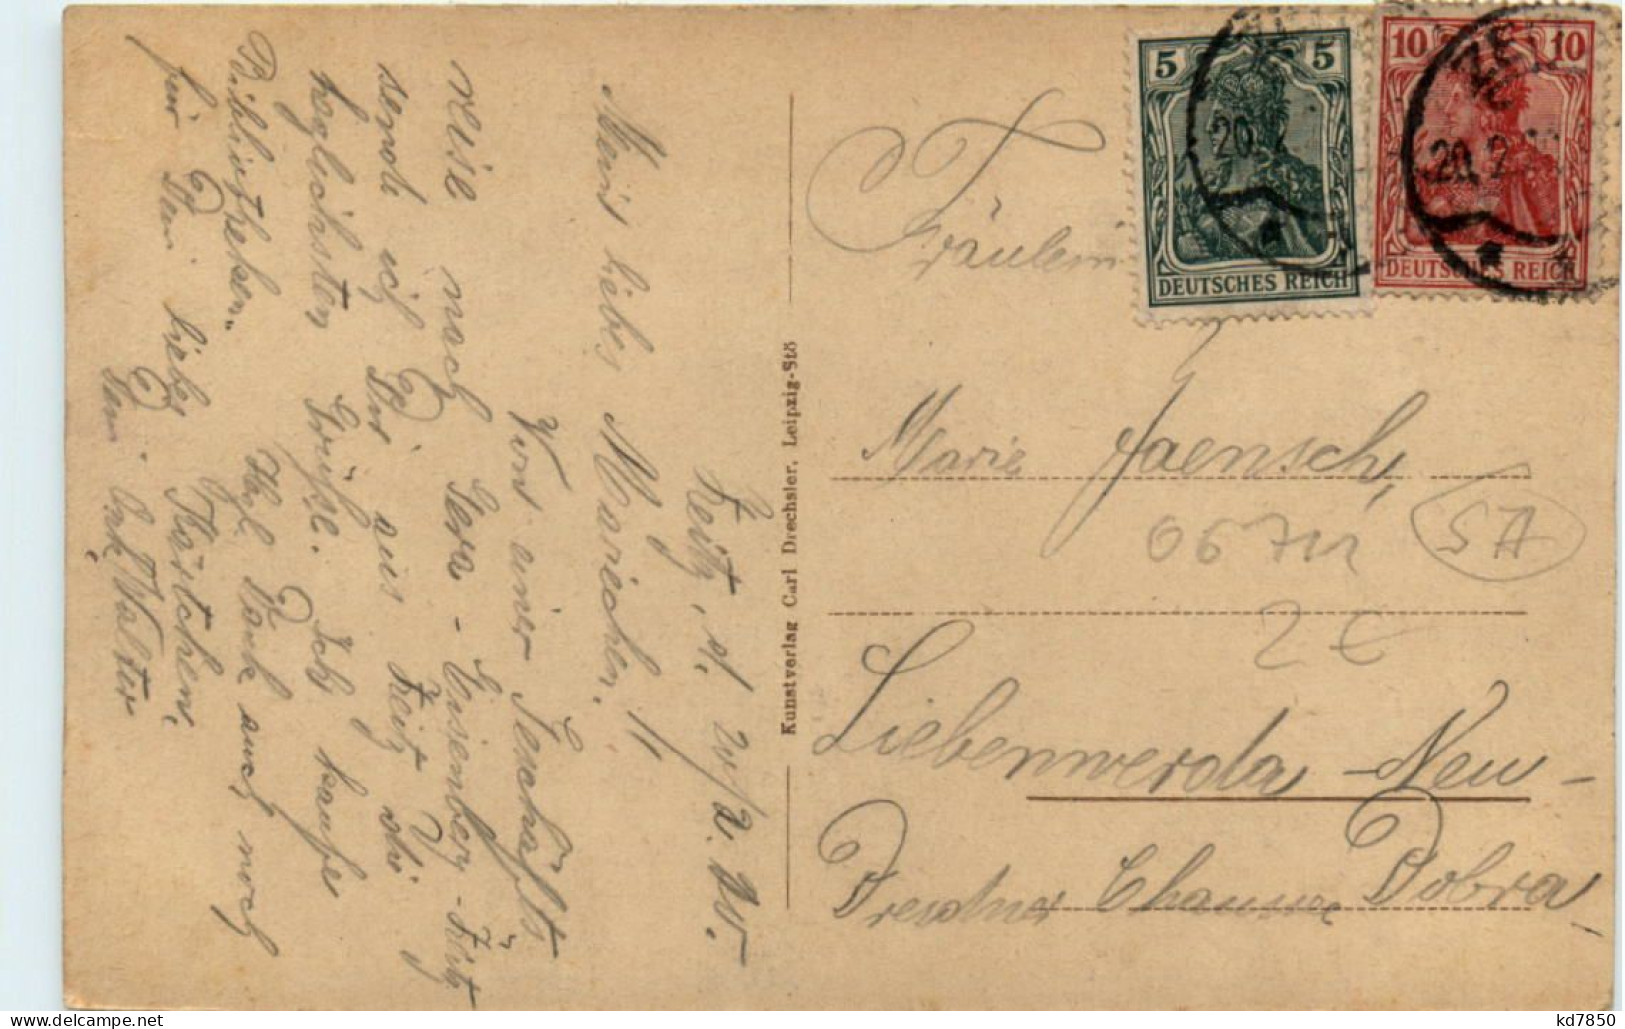 Zeitz, d. 20/2. 20.
Mein liebes Mariechen!
Von einer Geschäfts
reise nach Gera - Eisenberg - Zeitz
sende ich Dir aus Zeitz die
herzlichsten Grüße. Ich kaufe
Bibliotheken.
Hzl. Dank auch noch
für Dein liebes Kärtchen.
Dein Onk. Walter
Kunstverlag Carl Drechsler, Leipzig-Stö
5 5
DEUTSCHES REICH
10 10
DEUTSCHES REICH
ZE
20. 2
20. 2
Fräulein
Marie Jaensch,
06711
SA
2 €
Liebenwerda - Neu -
Dresdner Chaussee Dobra!
kd7850